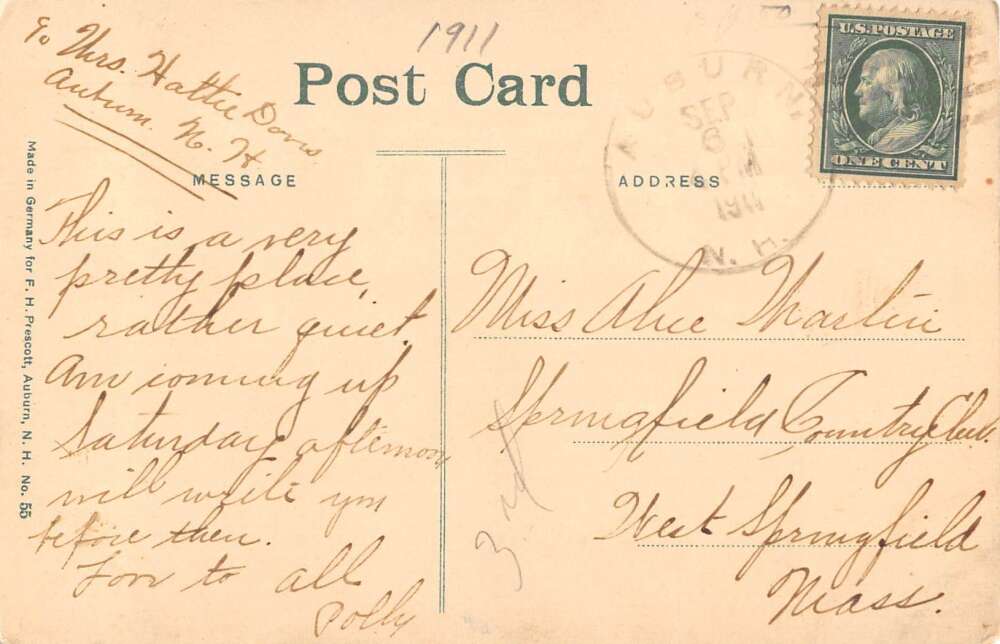 1911
To Mrs. Hattie Davis
Auburn. N. H
Post Card
AUBURN.
SEP
6
PM
1911
N. H.
U.S. POSTAGE
ONE CENT
MESSAGE
ADDRESS
This is a very
pretty place,
rather quiet.
Am coming up
Saturday afternoon
will write you
before then.
Love to all
Polly
Miss Alice Martin
Springfield Country Club.
West Springfield
Mass.
3rd
Made in Germany for F. H. Prescott, Auburn, N. H. No. 55